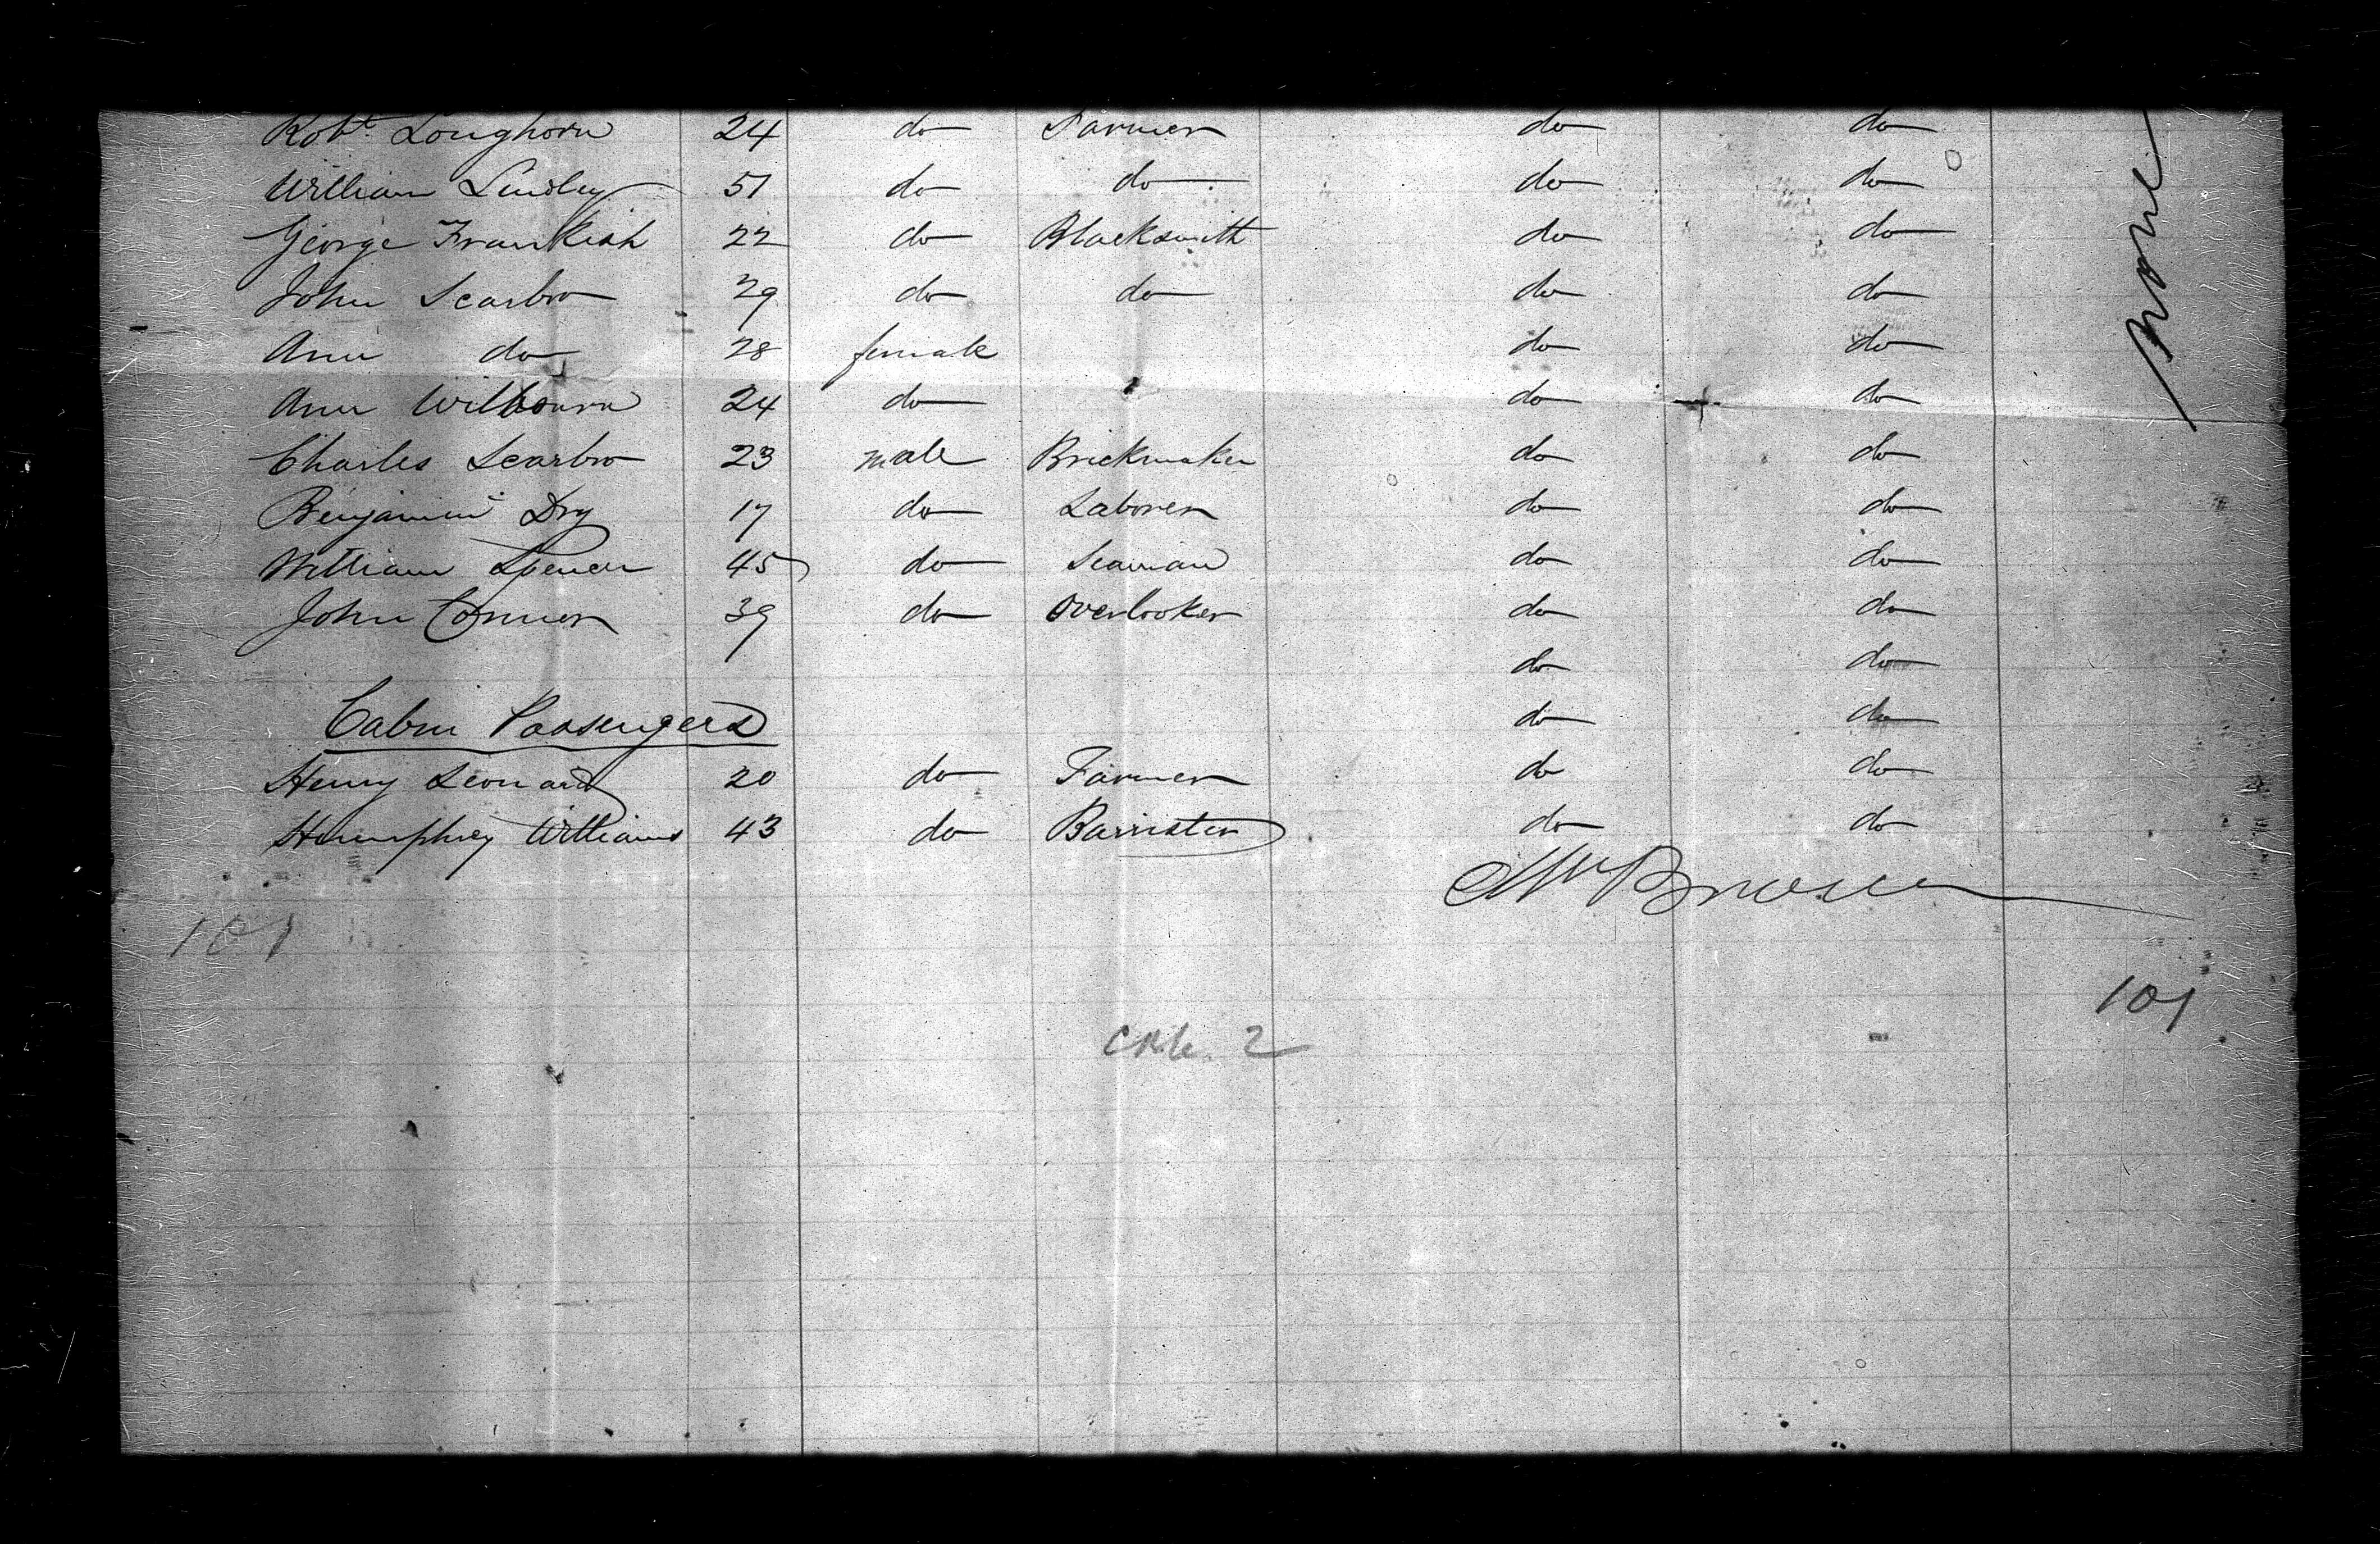 Robt. Longhorn 24 do Farmer do do
William Lindley 51 do do do do
George Frankish 22 do Blacksmith do do
John Scarbro 29 do do do do
Ann do 28 female do do
Ann Wilbourn 24 do do do
Charles Scarbro 23 male Brickmaker do do
Benjamin Dry 17 do Laborer do do
William Spencer 45 do Seaman do do
John Connor 39 do Overlooker do do
do do
Cabin Passengers do do
Henry Leonard 20 do Farmer do do
Humphrey Williams 43 do Barrister do do
101
101
2
None